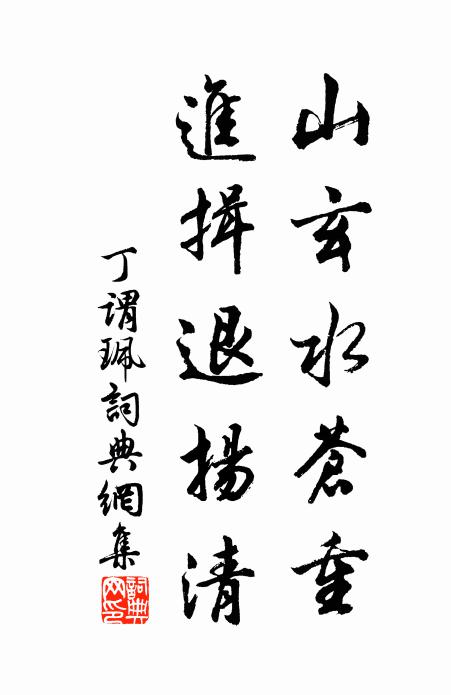 山玄水蒼重
進揖退揚清
丁謂珮詞典網集
詞典網印